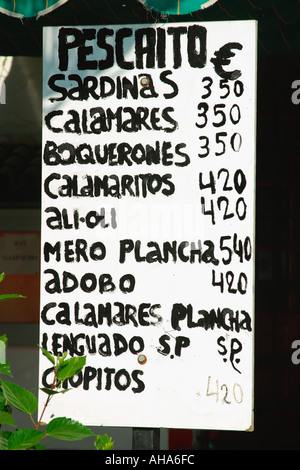 PESCAITO €
SARDINAS 350
CALAMARES 350
BOQUERONES 350
CALAMARITOS 420
ALI-OLI 420
MERO PLANCHA 540
ADOBO 420
CALAMARES PLANCHA
LENGUADO S.P S.P.
CHOPITOS 420
alamy
Image ID: AHA6FC
www.alamy.com